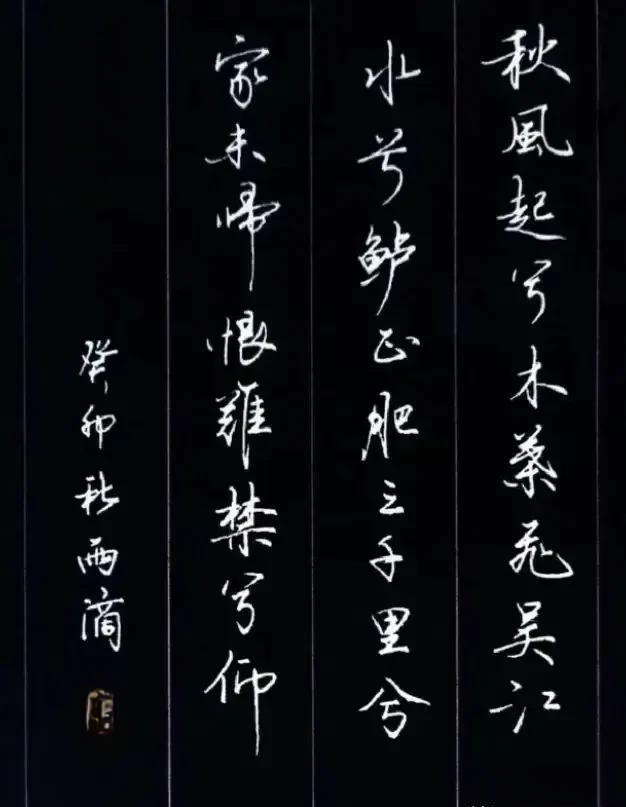 秋風起兮木葉飛吴江
水兮鲈正肥三千里兮
家未帰恨難禁兮仰
癸卯秋雨滴